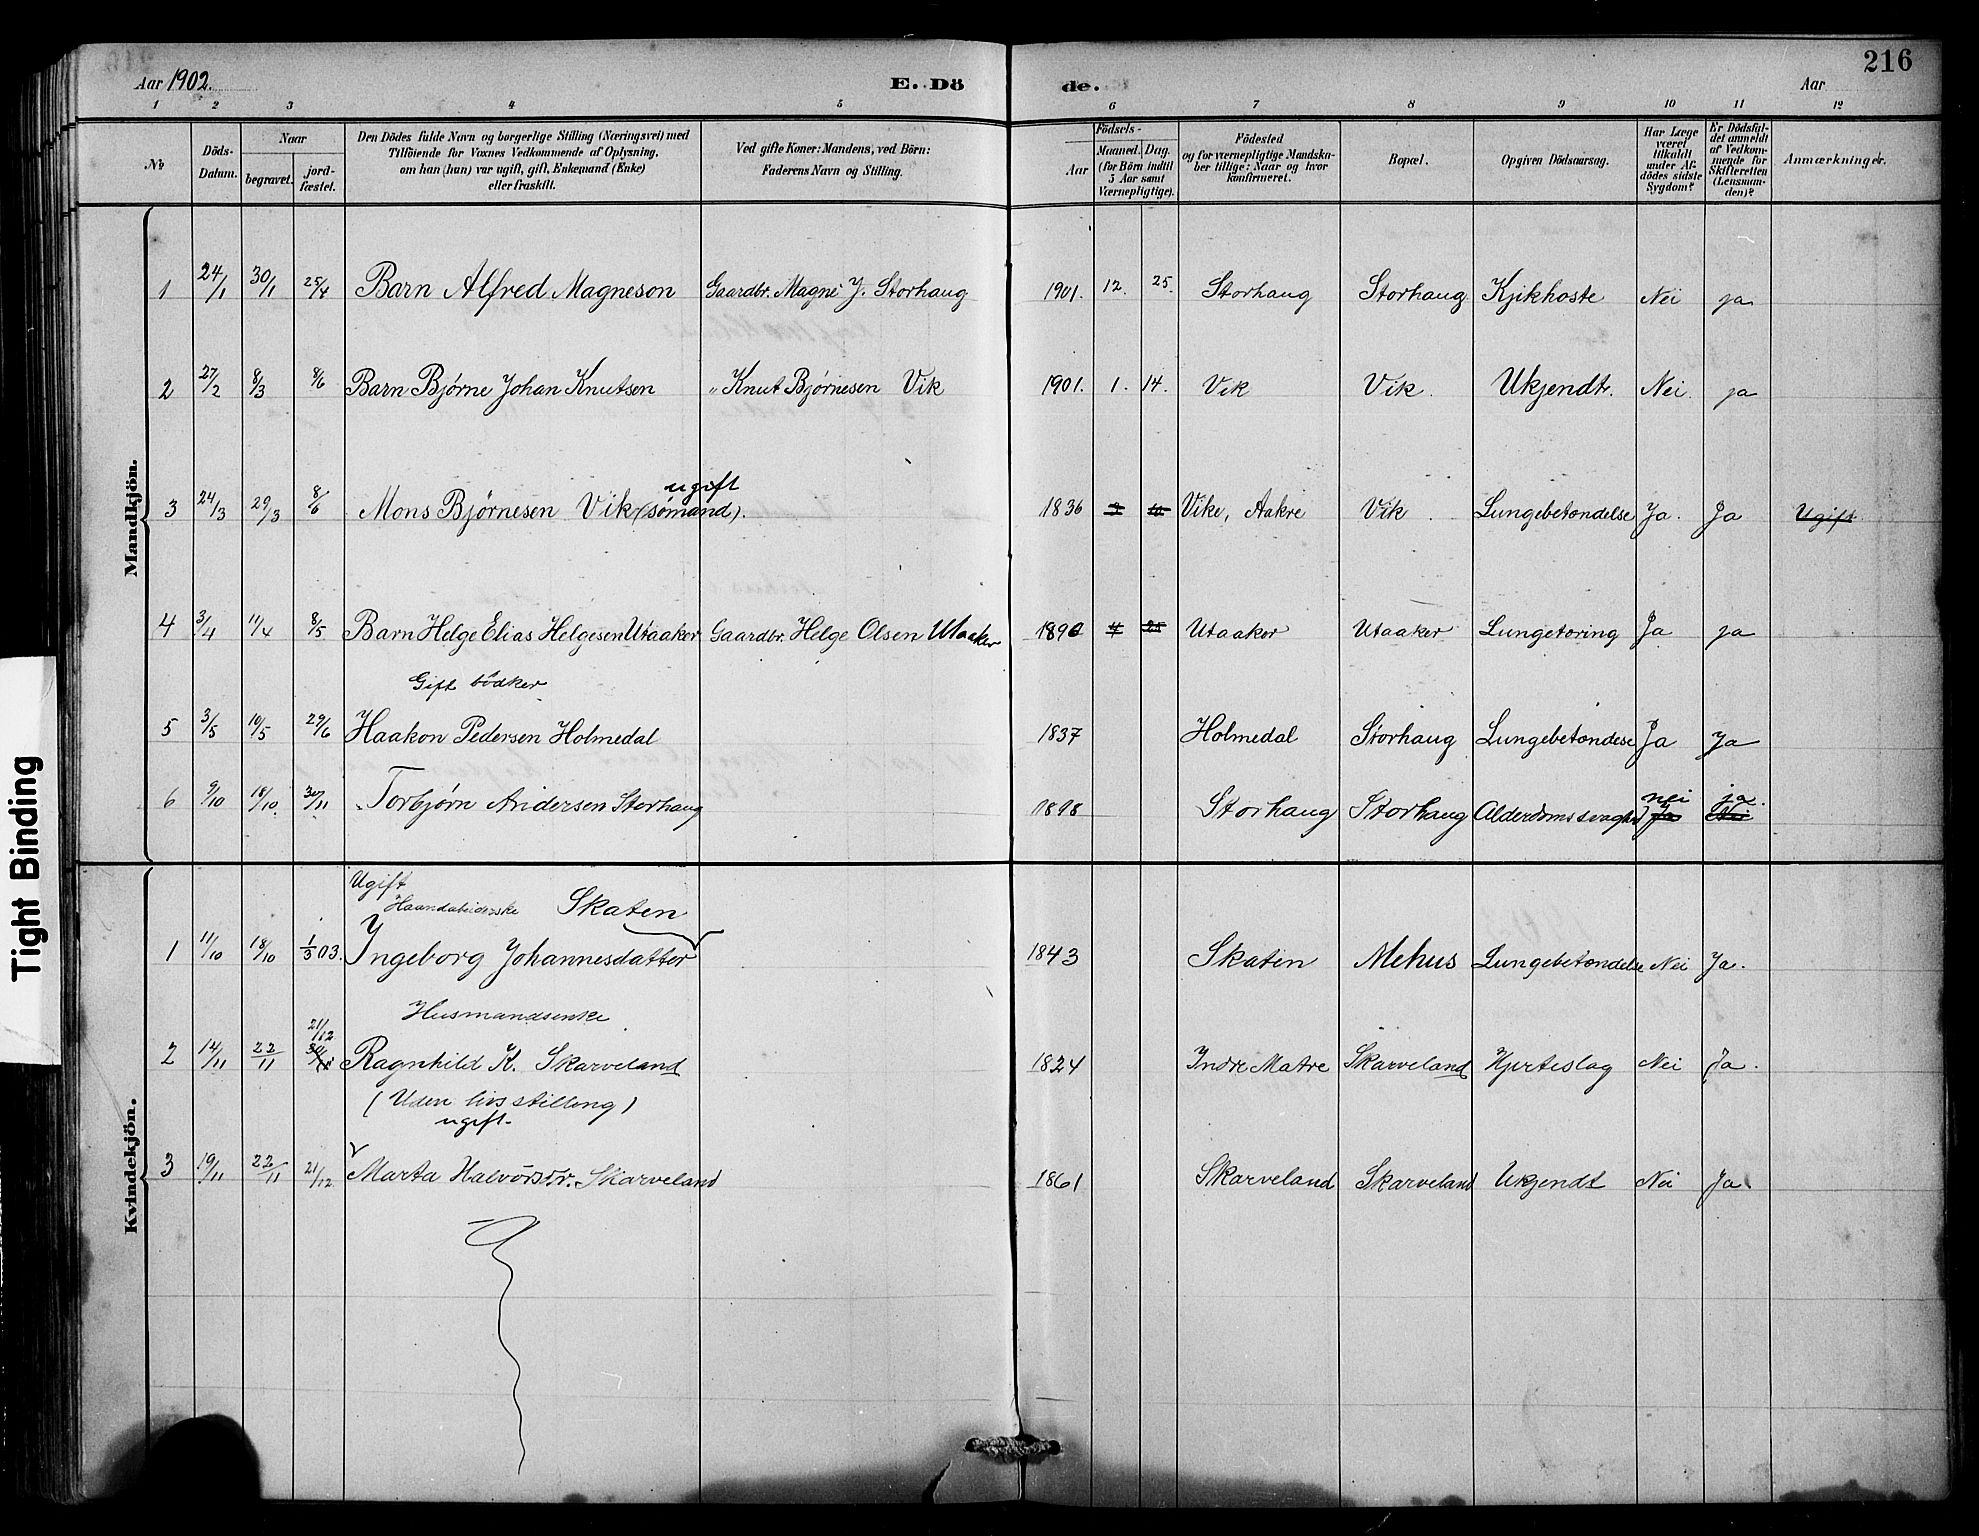 216
Aar 1902. E. Döde. Aar
1 2 3 4 5 6 7 8 9 10 11 12
No
Döds-Datum.
Naar
begravet.
jordfæstet.
Den Dödes fulde Navn og borgerlige Stilling (Næringsvei) med
Tilföiende for Voxnes Vedkommende af Oplysning,
om han (hun) var ugift, gift, Enkemand (Enke)
eller fraskilt.
Ved gifte Koner: Mandens, ved Börn:
Faderens Navn og Stilling.
Födsels-
Aar
Maaned. Dag.
(for Börn indtil
5 Aar samt
Værnepligtige).
Födested
og for værnepligtige Mandska-
ber tillige: Naar og hvor
konfirmeret.
Bopæl.
Opgiven Dödsaarsag.
Har Læge
været
tilkaldt
under Af-
dödes sidste
Sygdom?
Er Dödsfal-
det anmeldt
af Vedkom-
mende for
Skifteretten
(Lensman-
den)?
Anmærkninger.
Mandkjön.
1 24/1 30/1 25/4 Barn Alfred Magneson Gaardbr. Magne J. Storhaug 1901. 12. 25. Storhaug Storhaug Kjikhoste Nei ja
2 27/2 8/3 8/6 Barn Bjørne Johan Knutsen " Knut Bjørnesen Vik 1901. 1. 14. Vik Vik. Ukjendt. Nei ja
ugift
3 24/3 29/3 8/6 Mons Bjørnesen Vik (sømand). 1836 Vike, Aakre Vik. Lungebetændelse Ja. Ja Ugift
4 3/4 11/4 8/5 Barn Helge Elias Helgesen Utaaker Gaardbr. Helge Olsen Utaaker 1896 4 25 Utaaker Utaaker Lungetæring Ja ja
Gift bødker
5 3/5 10/5 29/6 Haakon Pedersen Holmedal 1837 Holmedal Storhaug Lungebetændese Ja Ja
nei ja.
6 9/10 18/10 30/11 Torbjørn Andersen Storhaug 1898 Storhaug Storhaug Ja Nei
Kvindekjön.
Ugift
Haandarbeiderske Skaten
1 11/10 18/10 1/3 03. Ingeborg Johannesdatter 1843 Skaten Mehus Lungebetændelse Nei Ja.
Husmandsenke
21/12
2 14/11 22/11 Ragnhild K. Skarveland 1824 Indre Matre Skarveland Hjerteslag Nei Ja.
(Uden livsstilling)
ugift.
3 19/11 22/11 21/12 Marta Halvorsdr. Skarveland 1861 Skarveland Skarveland Ukjendt Nei Ja
Tight Binding